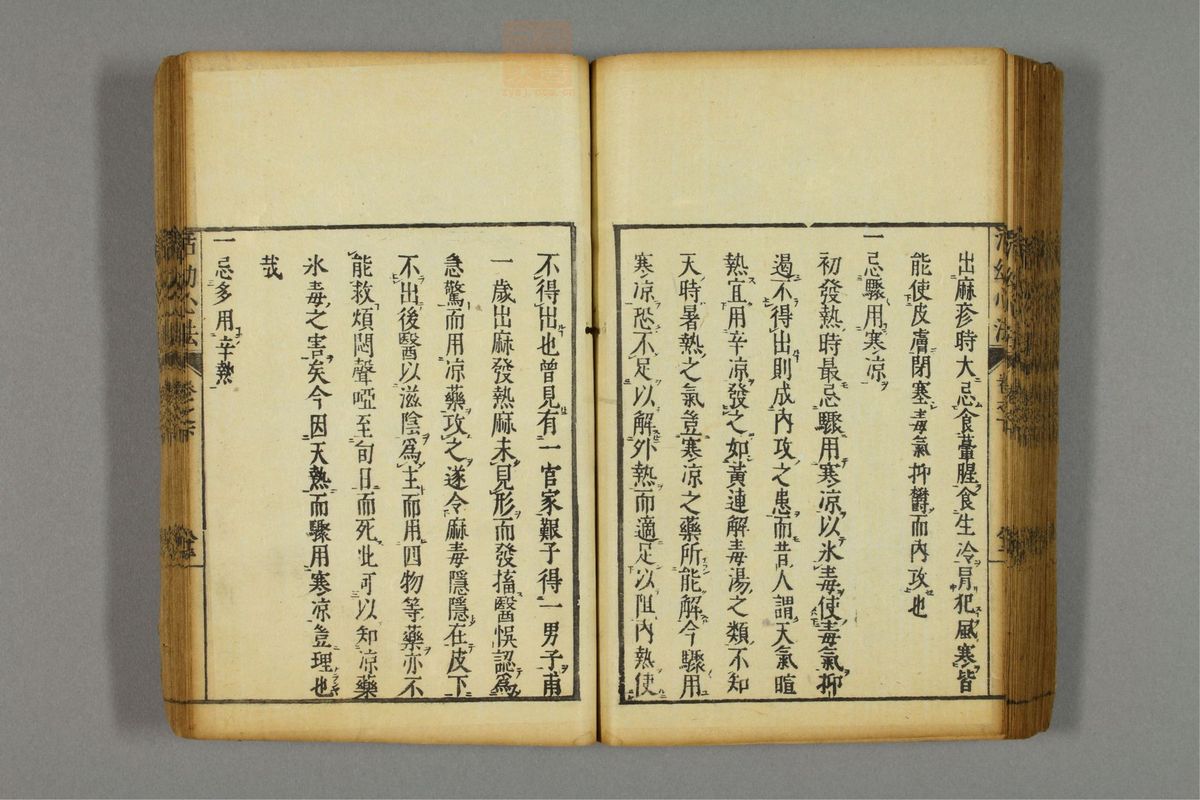 出麻疹時大忌食葷腥食生冷冐犯風寒皆
能使皮膚閉塞毒氣抑欝而內攻也
一忌驟用寒凉
初發熱時最忌驟用寒凉以氷毒使毒氣抑
遏不得出則成內攻之患而昔人謂天氣暄
熱宜用辛凉發之如黃連解毒湯之類不知
天時暑熱之氣豈寒凉之藥所能解今驟用
寒凉恐不足以解外熱而適足以阻內熱使
不得出也曾見有一官家艱子得一男子甫
一歲出麻發熱麻未見形而發搐醫悞認爲
急驚而用凉藥攻之遂令麻毒隱隱在皮下
不出後醫以滋陰爲主而用四物等藥亦不
能救煩悶聲啞至旬日而死此可以知凉藥
氷毒之害矣今因天熱而驟用寒凉豈理也
哉
一忌多用辛熱
活幼心法
卷之下